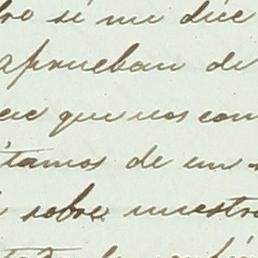 bre si me dice
aprueban de
que nos con
tamos de un
sobre nuestro